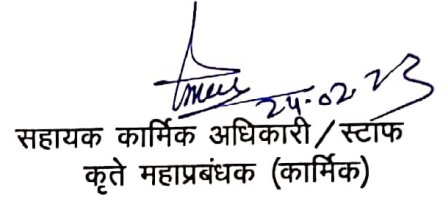 24.02.23
सहायक कार्मिक अधिकारी/स्टाफ
कृते महाप्रबंधक (कार्मिक)